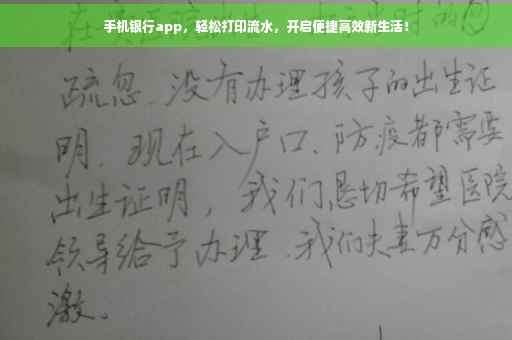 手机银行app，轻松打印流水，开启便捷高效新生活！
疏忽.没有办理孩子的出生证
明.现在入户口、防疫都需要
出生证明，我们恳切希望医院
领导给予办理.我们夫妻万分感
激。